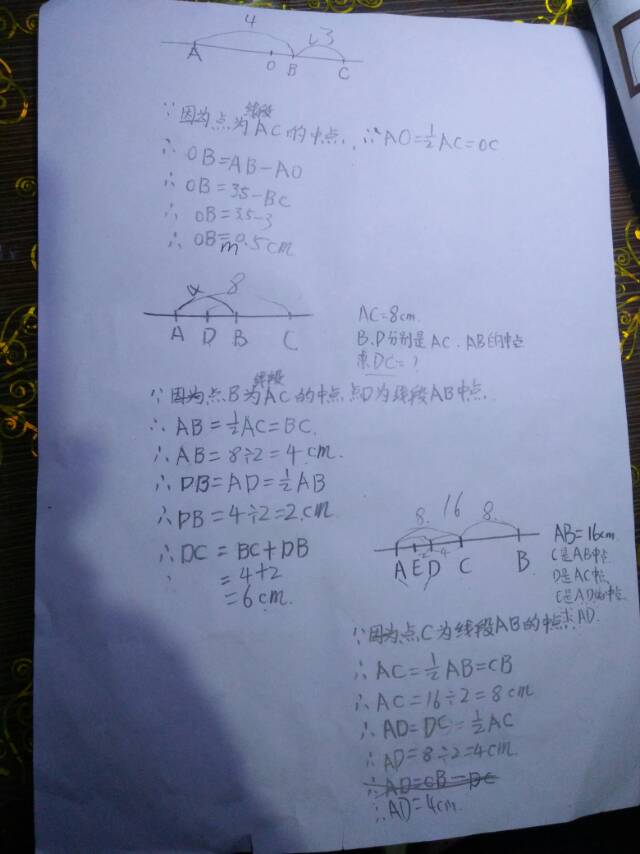 4 3
A O B C
∵因为点为线段AC的中点, ∴AO=½AC=OC
∴ OB=AB-AO
∴ OB=3.5-BC
∴ OB=3.5-3
∴ OB=0.5cm
m
4 8
A D B C
AC=8cm.
B.D分别是AC、AB的中点
求DC=?
∵因为点B为线段AC的中点.点D为线段AB中点.
∴ AB=½AC=BC.
∴ AB=8÷2=4cm.
∴ DB=AD=½AB
∴ DB=4÷2=2.cm
∴ DC=BC+DB
=4+2
=6cm.
8. 16 8.
2 4
A E D C B
AB=16cm.
C是AB中点
D是AC中点
E是AD的中点.
求AD.
∵因为点C为线段AB的中点
∴ AC=½AB=CB
∴ AC=16÷2=8cm
∴ AD=DC=½AC
∴ AD=8÷2=4cm
∴ AD=CB-DC
∴ AD=4cm.